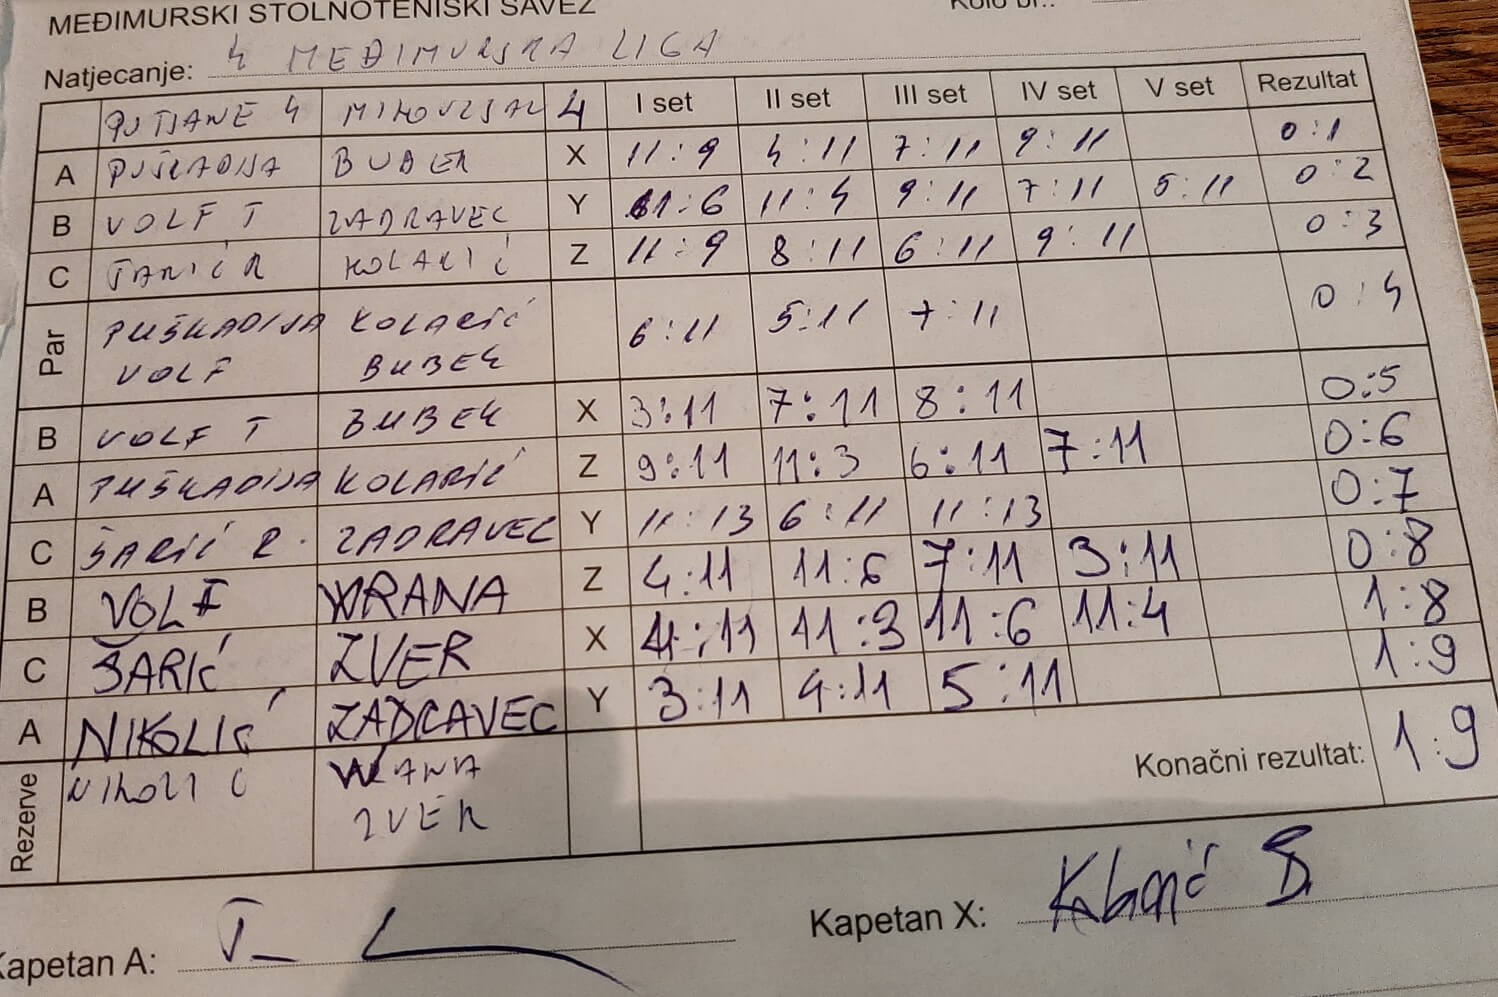 MEĐIMURSKI STOLNOTENISKI SAVEZ
Kolo br.:
Natjecanje: 4 MEĐIMURSKA LIGA
PUTJANE 4 MIHOVLJAN 4 I set II set III set IV set V set Rezultat
A PUŠKADIJA BUBEK X 11:9 4:11 7:11 9:11 0:1
B VOLF T ZADRAVEC Y 11:6 11:4 9:11 7:11 5:11 0:2
C ŠARIĆ R KOLARIĆ Z 11:9 8:11 6:11 9:11 0:3
Par PUŠKADIJA KOLARIĆ 6:11 5:11 7:11 0:4
VOLF BUBEK
B VOLF T BUBEK X 3:11 7:11 8:11 0:5
A PUŠKADIJA KOLARIĆ Z 9:11 11:3 6:11 7:11 0:6
C ŠARIĆ R. ZADRAVEC Y 11:13 6:11 11:13 0:7
B VOLF VRANA Z 4:11 11:6 7:11 3:11 0:8
C ŠARIĆ ZVER X 4:11 11:3 11:6 11:4 1:8
A NIKOLIĆ ZADRAVEC Y 3:11 4:11 5:11 1:9
Rezerve NIKOLIĆ VRANA
ZVER
Konačni rezultat: 1:9
Kapetan A:
Kapetan X: